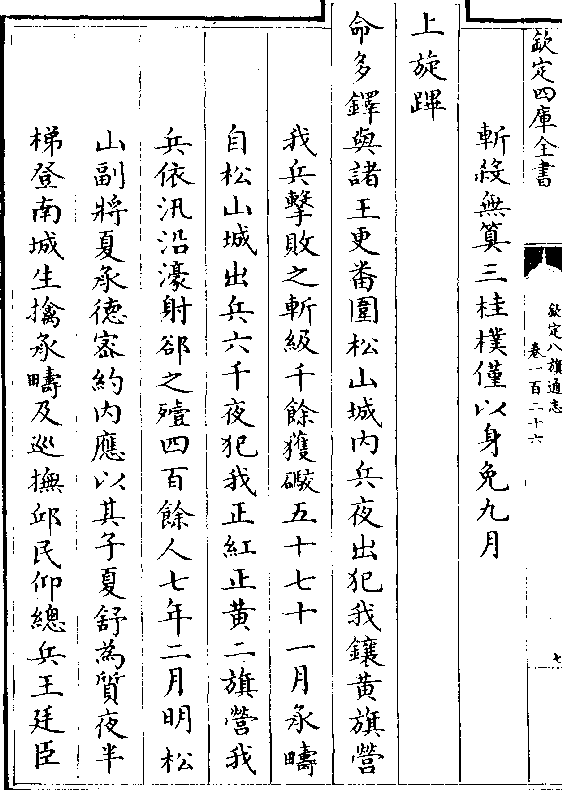 欽定四庫全書
欽定八旗通志
卷一百二十六
七
斬殺無算三桂樸僅以身免九月
上旋蹕
命多鐸與諸王更番圍松山城内兵夜出犯我鑲黄旗營
我兵擊敗之斬級千餘獲礮五十七十一月承疇
自松山城出兵六千夜犯我正紅正黄二旗營我
兵依汛沿濠射郤之殪四百餘人七年二月明松
山副將夏承德宻約内應以其子夏舒為質夜半
梯登南城生擒承疇及巡撫邱民仰總兵王廷臣